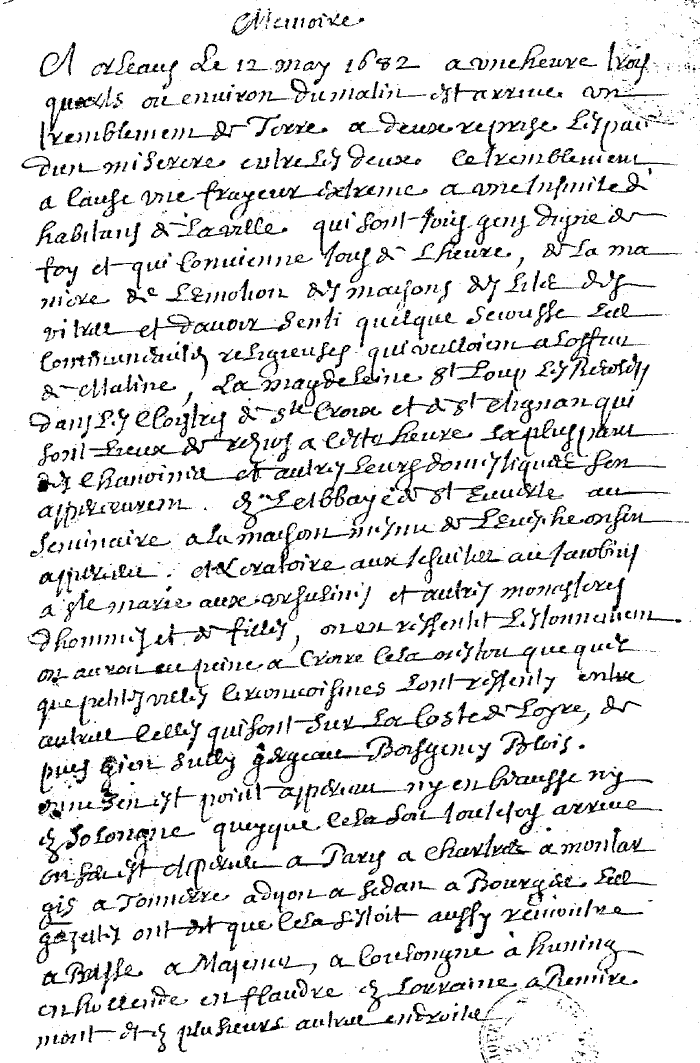 Memoire
A orleans Le 12 may 1682 a une heure trois
quarts ou environ du matin est arrive un
tremblement de Terre a deux reprise Lespace
dun miserere entre les deux ce tremblement
a cause une frayeur extreme a une Infinite d
habitans de La ville qui sont tous gens digne de
foy et qui convienne tous de Lheure, de La ma
niere de Lemotion des maisons des Lits des
vitree et davoir senti quelque secousse Les
Communautes religieuses qui veilloient a Loffice
de Matine, La magdeleine St Loup Les
dans Les Cloistres de Ste Croix et de St Aignan qui
sont Lieux de repos a cette heure La pluspart
des Chanoines et autres Leurs domestiques sen
apperceurent. en LAbbaye de St Euverte au
Seminaire a la maison mesme de Levesche on sen
apperceu. A Loratoire aux Jesuites aux Jacobins
a Ste marie aux ursulines et autres monasteres
dhommes et de filles, on en ressentit Lestonnement.
on auroit eu peine a Croire cela estou que
que petites villes circonvoisines Lont ressenty entre
autres Celles qui sont sur La Coste de Loyre, de
puis gien sully gergeau Boisgency Blois.
on ne sen est point apperceu ny en beausse ny
en Solongne quoyque cela soit toutefoy arrive
on sen est aperceu a Paris a Chartres a montar
gis a Tonnerre a dijon a sedan a Bourges Les
gazettes ont dit que cela sestoit aussy rencontre
a Basle a Majence, a Coulongne à huning
en hollende en flandre en Lorraine a Remire
mont et en plusieurs autres endroits